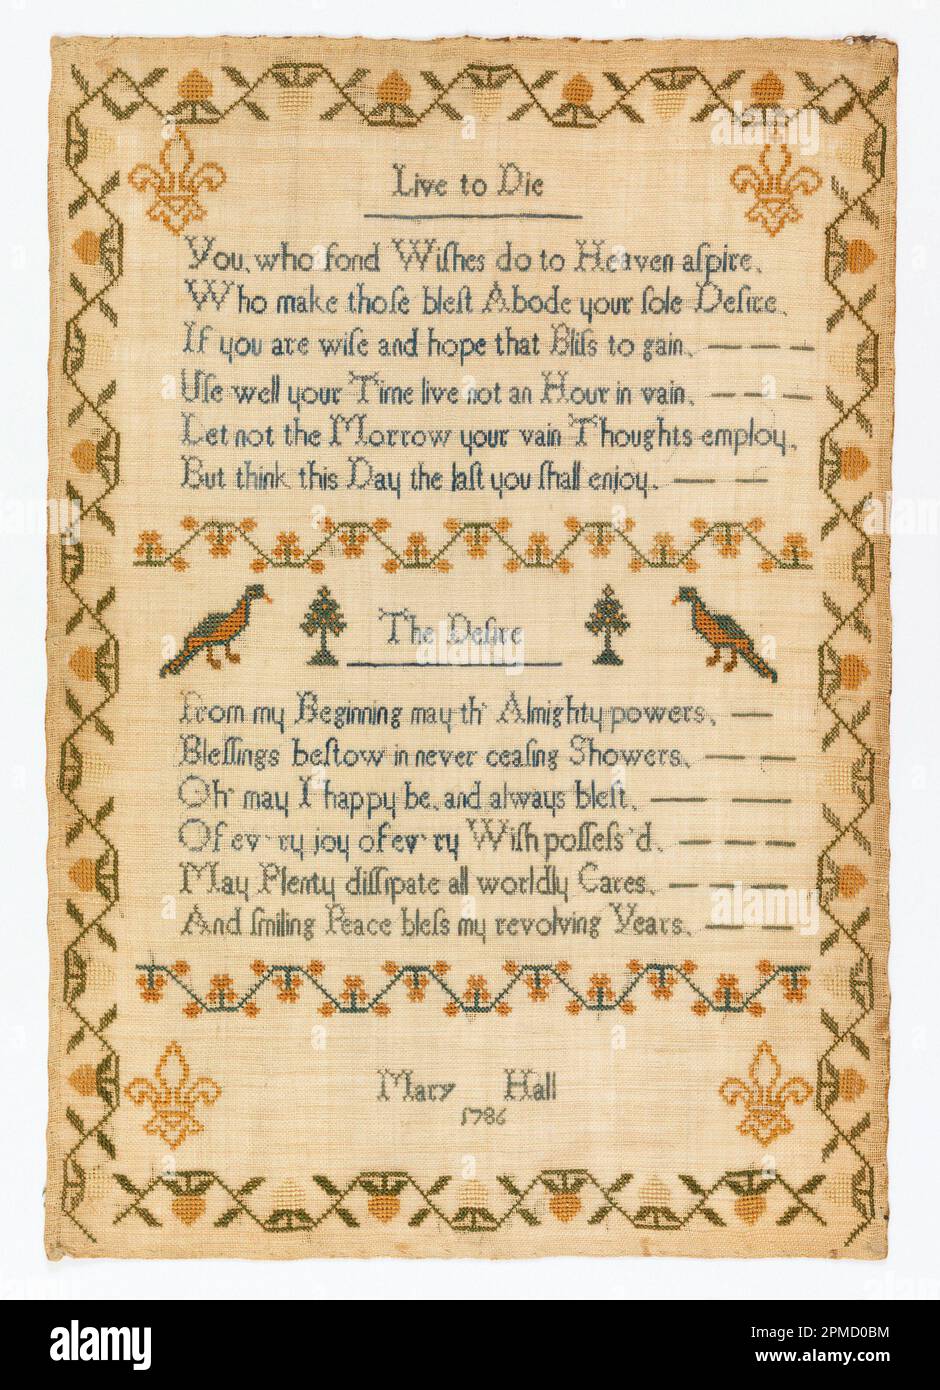 Live to Die
You, who fond Wiſhes do to Heaven aſpire,
Who make thoſe bleſt Abode your ſole Deſire,
If you are wiſe and hope that Bliſs to gain, — — —
Uſe well your Time live not an Hour in vain, — — —
Let not the Morrow your vain Thoughts employ,
But think this Day the laſt you ſhall enjoy, — —
The Deſire
From my Beginning may th' Almighty powers, —
Bleſſings beſtow in never ceaſing Showers, — —
Oh' may I happy be, and always bleſt, — —
Of ev'ry joy of ev'ry Wiſh poſſeſs'd, — — —
May Plenty diſſipate all worldly Cares, — — —
And ſmiling Peace bleſs my revolving Years, — —
Mary Hall
1786
alamy
Image ID: 2PMD0BM
www.alamy.com